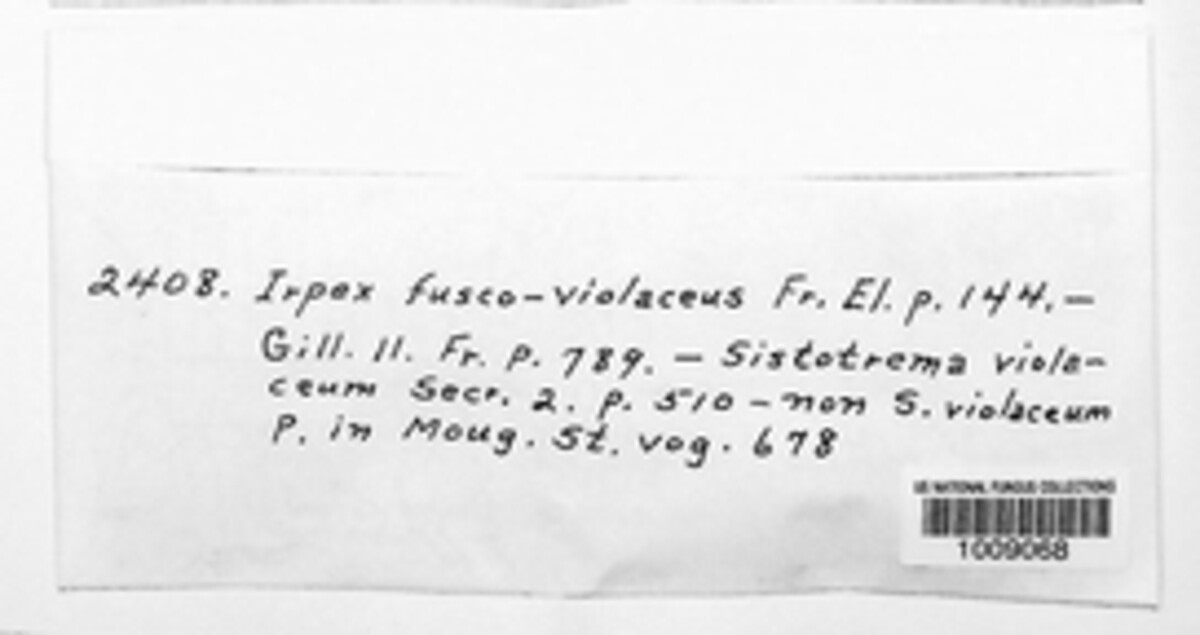 2408. Irpex fusco-violaceus Fr. El. p. 144. —
Gill. Il. Fr. p. 789. — Sistotrema viola-
ceum Secr. 2. p. 510 — non S. violaceum
P. in Moug. St. vog. 678
US NATIONAL FUNGUS COLLECTIONS
1009068